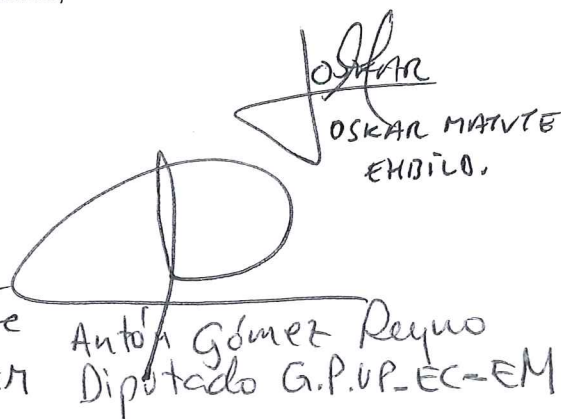 JOSKAR
OSKAR MATUTE
EHBILD.
e Antón Gómez Reyno
en Diputado G.P.UP-EC-EM